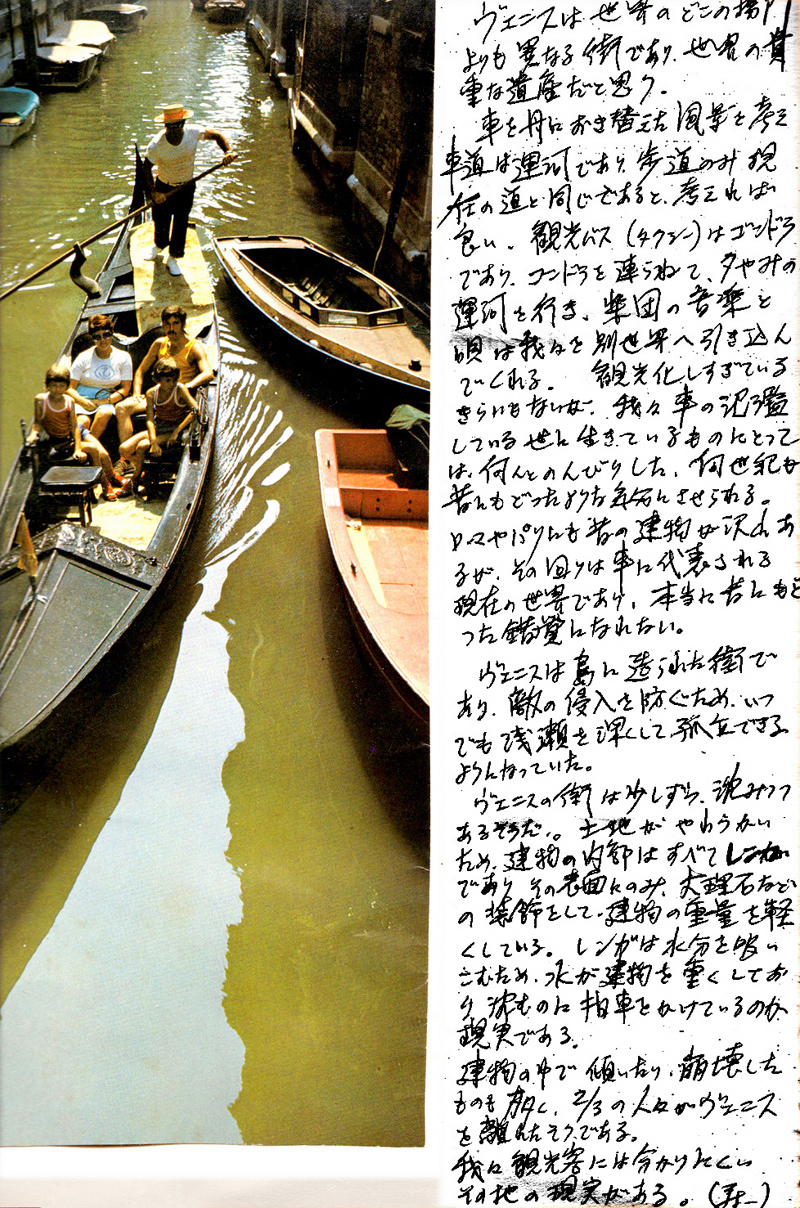 ヴェニスは、世界のどこの場所
よりも異なる街であり、世界の貴
重な遺産だと思う。
車を舟におき替えた風景を考え
車道は運河であり、歩道のみ現
在の道と同じであると、考えれば
良い。観光バス(タクシー)はゴンドラ
であり、ゴンドラを連らねて、夕やみの
運河を行き、楽団の音楽と
唄は我々を別世界へ引き込ん
でくれる。 観光化しすぎている
きらいもないが、我々車の氾濫
している世に生きているものにとって
は、何んとのんびりした、何世紀も
昔にもどったような気分にさせられる。
ローマやパリにも昔の建物が沢山あ
るが、その回りは車に代表される
現在の世界であり、本当に昔にもど
った錯覚になれない。
ヴェニスは島に造られた街で
あり、敵の侵入を防ぐため、いつ
でも浅瀬を深くして孤立できる
ようになっていた。
ヴェニスの街は少しずつ、沈みつつ
あるそうだ。土地がやわらかい
ため、建物の内部はすべてレンガ
であり、その表面にのみ、大理石などの
の装飾をして、建物の重量を軽
くしている。レンガは水分を吸い
こむため、水が建物を重くしてお
り、沈むのに拍車をかけているのが
現実である。
建物の中で傾いたり、崩壊した
ものも多く、2/3の人々がヴェニス
を離れたそうである。
我々観光客には今かりにくい
その地の現実がある。